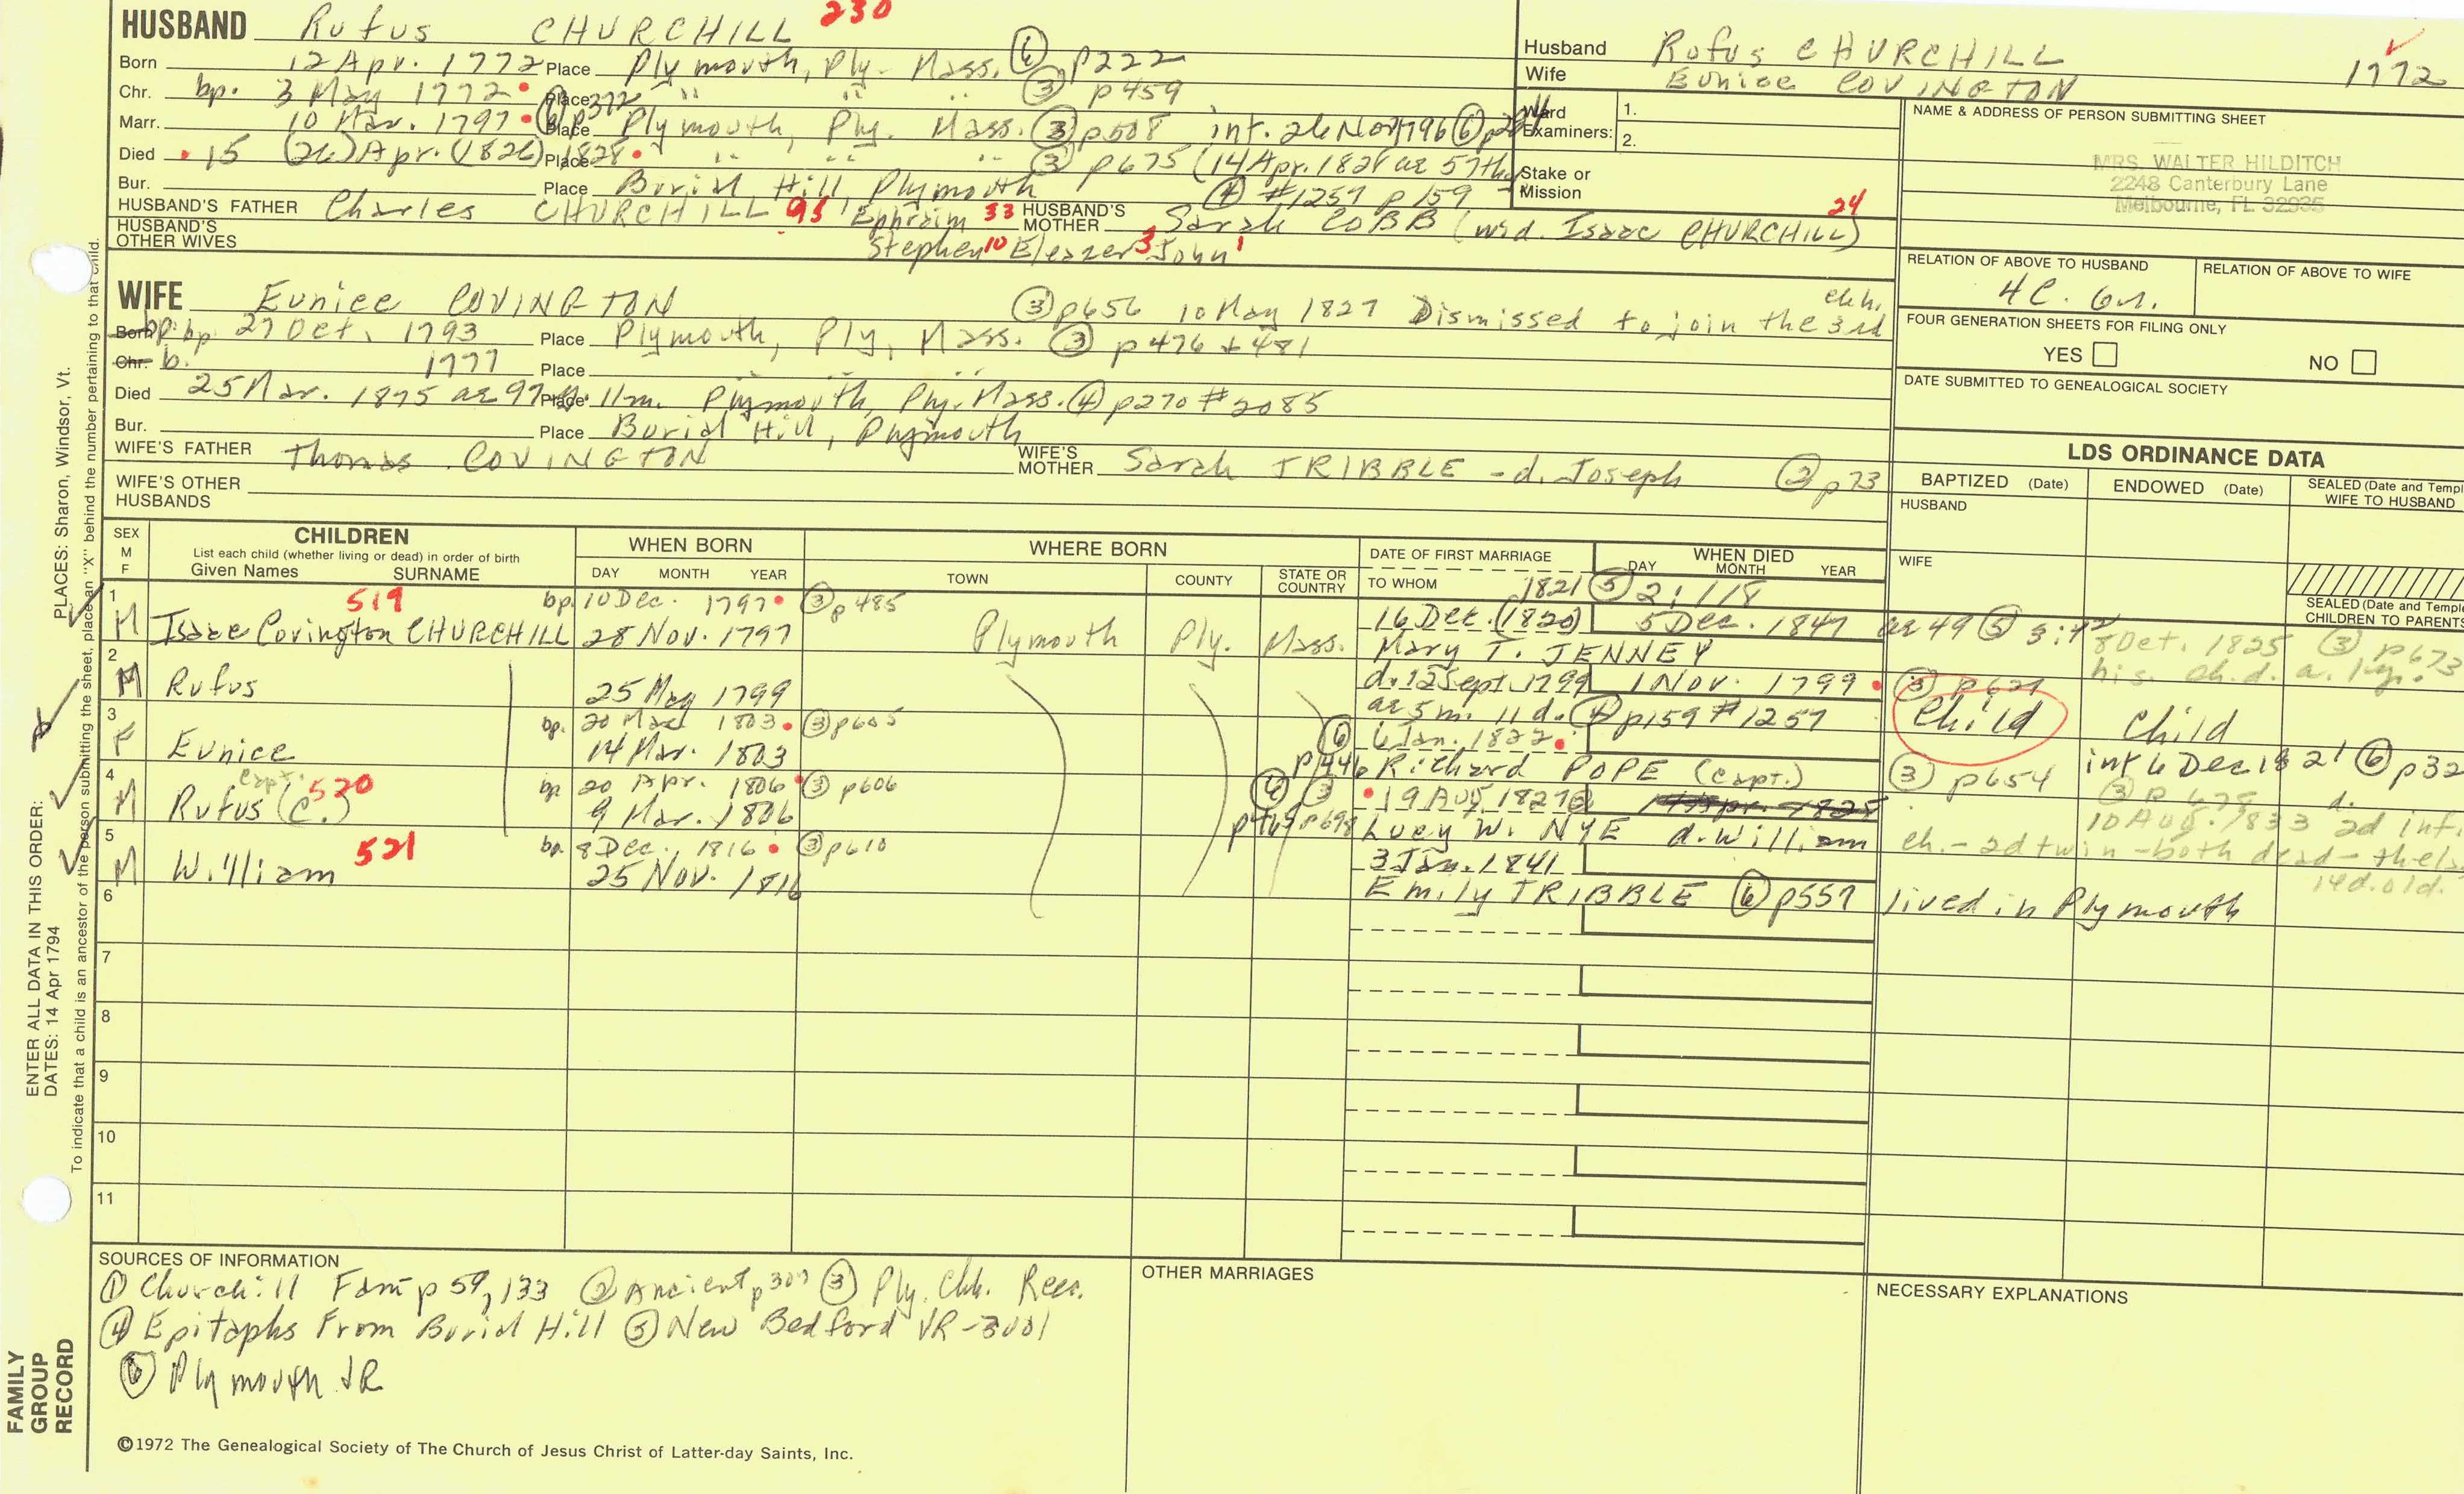 HUSBAND Rufus CHURCHILL 230
Born 12 Apr. 1772 Place Plymouth, Ply. Mass. ⑥ p222
Chr. bp. 3 May 1772 Place " " " ③ p459
Marr. 10 Mar. 1797 Place Plymouth, Ply. Mass. ③ p508 int. 26 Nov 1796 ⑥
Died 15 (26) Apr. (1826) 1828 Place " " " ③ p675 (14 Apr. 1828 ae 57th
Bur. Place Burial Hill, Plymouth ④ #1257 p159
HUSBAND'S FATHER Charles CHURCHILL 95 Ephraim 33 HUSBAND'S MOTHER Sarah COBB (wid. Isaac CHURCHILL) 24
HUSBAND'S OTHER WIVES Stephen 10 Eleazer 3 John 1
Husband Rufus CHURCHILL
Wife Eunice COVINGTON 1772
Ward Examiners: 1.
2.
Stake or Mission
NAME & ADDRESS OF PERSON SUBMITTING SHEET
MRS. WALTER HILDITCH
2248 Canterbury Lane
Melbourne, FL 32935
RELATION OF ABOVE TO HUSBAND
4C. 6r.
RELATION OF ABOVE TO WIFE
FOUR GENERATION SHEETS FOR FILING ONLY
YES NO
DATE SUBMITTED TO GENEALOGICAL SOCIETY
WIFE Eunice COVINGTON ③ p656 10 May 1827 Dismissed to join the 3rd chh.
Born bp. bp 27 Oct. 1793 Place Plymouth, Ply, Mass. ③ p476 + 481
Chr. b. 1777 Place " " "
Died 25 Mar. 1875 ae 97 y. Place 11m. Plymouth, Ply. Mass. ④ p270 #2085
Bur. Place Burial Hill, Plymouth
WIFE'S FATHER Thomas COVINGTON WIFE'S MOTHER Sarah TRIBBLE - d. Joseph ② p73
WIFE'S OTHER HUSBANDS
LDS ORDINANCE DATA
BAPTIZED (Date) ENDOWED (Date) SEALED (Date and Templ
WIFE TO HUSBAND
HUSBAND
WIFE
SEALED (Date and Temple
CHILDREN TO PARENTS
SEX M F
CHILDREN
List each child (whether living or dead) in order of birth
Given Names SURNAME
WHEN BORN
DAY MONTH YEAR
WHERE BORN
TOWN COUNTY STATE OR COUNTRY
DATE OF FIRST MARRIAGE
TO WHOM
WHEN DIED
DAY MONTH YEAR
1821 ⑤ 2:118
1 519 bp. 10 Dec. 1797 ③ p485
M Isaac Covington CHURCHILL 28 Nov. 1797 Plymouth Ply. Mass. 16 Dec. (1820) 5 Dec. 1847 ae 49 ⑤ 3:42
Mary T. JENNEY
8 Oct. 1825 ③ p673
his ch. d. a. 1 yr.
2
M Rufus 25 May 1799 d. 12 Sept. 1799 1 Nov. 1799 ③
ae 5 m. 11 d. ④ p159 #1257 Child Child
3 bp. 20 Mar 1803 ③ p605
F Eunice 14 Mar. 1803 ⑥ 6 Jan. 1822
p446 Richard POPE (Capt.) ③ p654 int 6 Dec 1821 ⑥ p32
4 Capt. 520 bp 20 Apr. 1806 ③ p606
M Rufus (C.) 9 Mar. 1806 ⑥ ③ 19 Aug. 1827
p469 p698 Lucy W. NYE d. William
③ p 678 d.
10 Aug. 1833 2d inf.
ch. - 2d twin - both dead -
14 d. old.
5 521 bp. 8 Dec. 1816 ③ p610
M William 25 Nov. 1816 3 Jan. 1841
Emily TRIBBLE ⑥ p557 lived in Plymouth
6
7
8
9
10
11
SOURCES OF INFORMATION
① Churchill Fam p 59, 133 ② Ancient p307 ③ Ply. Chh. Recs.
④ Epitaphs From Burial Hill ⑤ New Bedford VR-3001
⑥ Plymouth VR
OTHER MARRIAGES
NECESSARY EXPLANATIONS
©1972 The Genealogical Society of The Church of Jesus Christ of Latter-day Saints, Inc.
FAMILY GROUP RECORD
ENTER ALL DATA IN THIS ORDER:
DATES: 14 Apr 1794
PLACES: Sharon, Windsor, Vt.
To indicate that a child is an ancestor of the person submitting the sheet, place an "X" behind the number pertaining to that child.